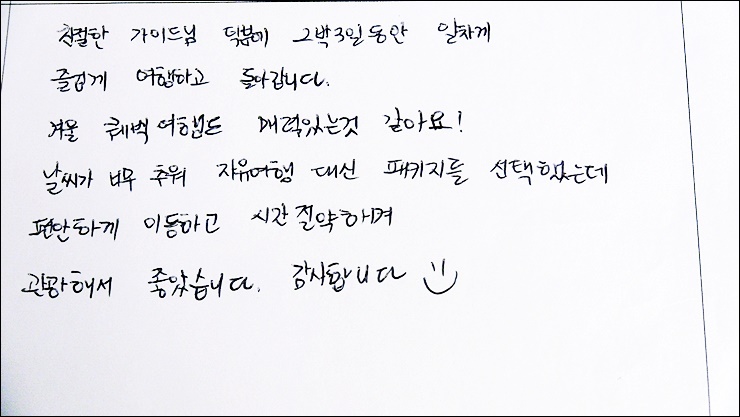 친절한 가이드님 덕분에 2박3일동안 알차게
즐겁게 여행하고 돌아갑니다.
겨울 퀘벡여행도 매력있는것 같아요!
날씨가 너무 추워 자유여행 대신 패키지를 선택했는데
편안하게 이동하고 시간절약하며
관광해서 좋았습니다. 감사합니다